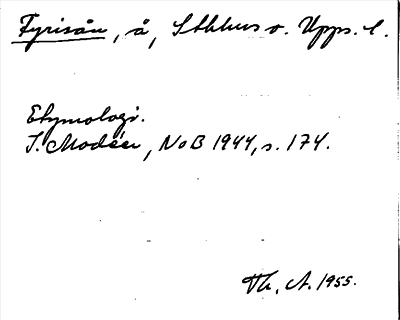 Fyrisån, å, Sthlms o. Upps. l.
Etymologi.
I. Modéer, NoB 1944, s. 174.
Th. A. 1955.